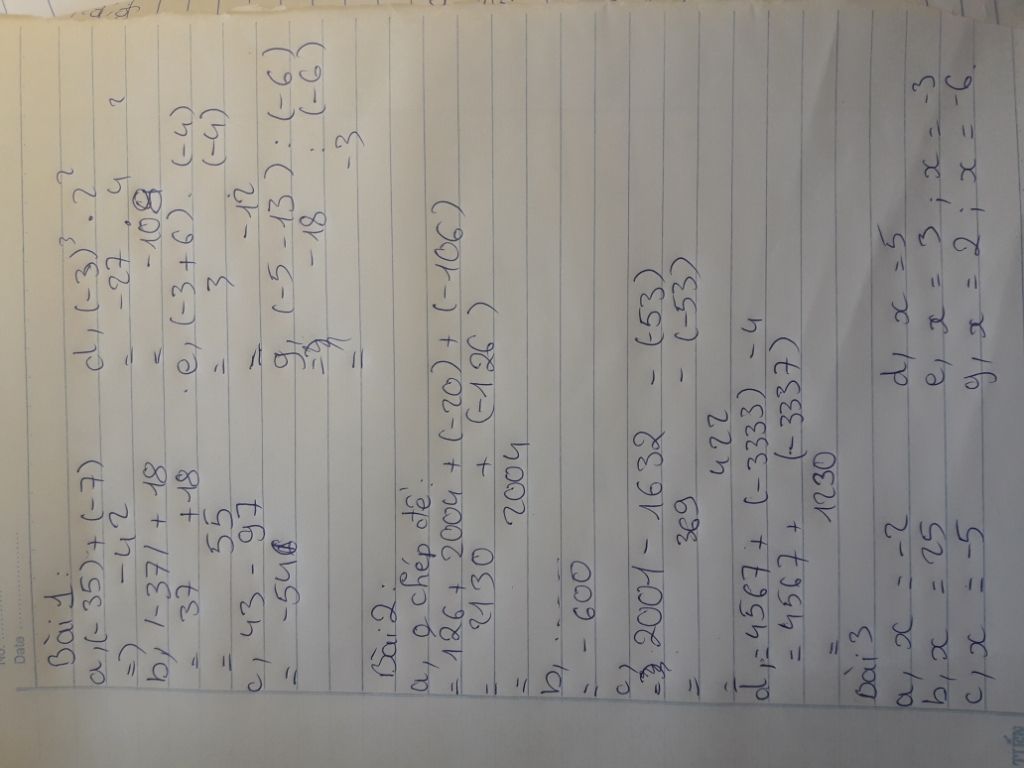 No:
Date
Bài 1:
a, (-35) + (-7)
=) -42
b, |-37| + 18
= 37 + 18
= 55
c, 43 - 97
= -54
d, (-3)³ . 2²
= -27 . 4
= -108
e, (-3 + 6) . (-4)
= 3 (-4)
= -12
g, (-5 - 13) : (-6)
= -18 : (-6)
= -3
Bài 2:
a, o chép đề
= 126 + 2004 + (-20) + (-106)
= 2130 + (-126)
= 2004
b, .......
= -600
c,
= 2001 - 1632 - (-53)
= 369 - (-53)
= 422
d, = 4567 + (-3333) - 4
= 4567 + (-3337)
= 1230
Bài 3
a, x = -2
b, x = 25
c, x = -5
d, x = 5
e, x = 3 ; x = -3
g, x = 2 ; x = -6
TIẾN